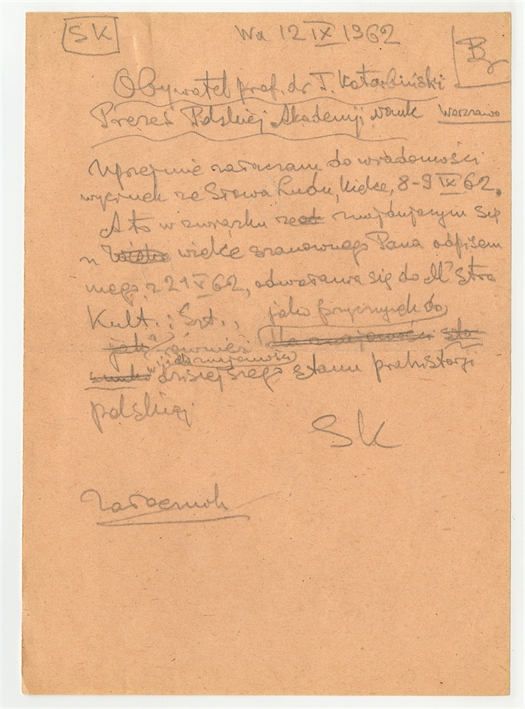 SK
Wa 12 IX 1962
Obywatel prof. dr T. Kotarbiński
Prezes Polskiej Akademji Nauk Warszawa
Uprzejmie załączam do wiadomości
wycinek ze Słowa Ludu, Kielce, 8-9 IX 62.
A to w związku ze znajdującym się
u wielce szanownego Pana odpisem
mego z 21 V 62, odwołania się do Mstra
Kult. i Szt., jako przyczynek do
znajomości
dzisiejszego stanu prehistorji
polskiej
SK
Załącznik